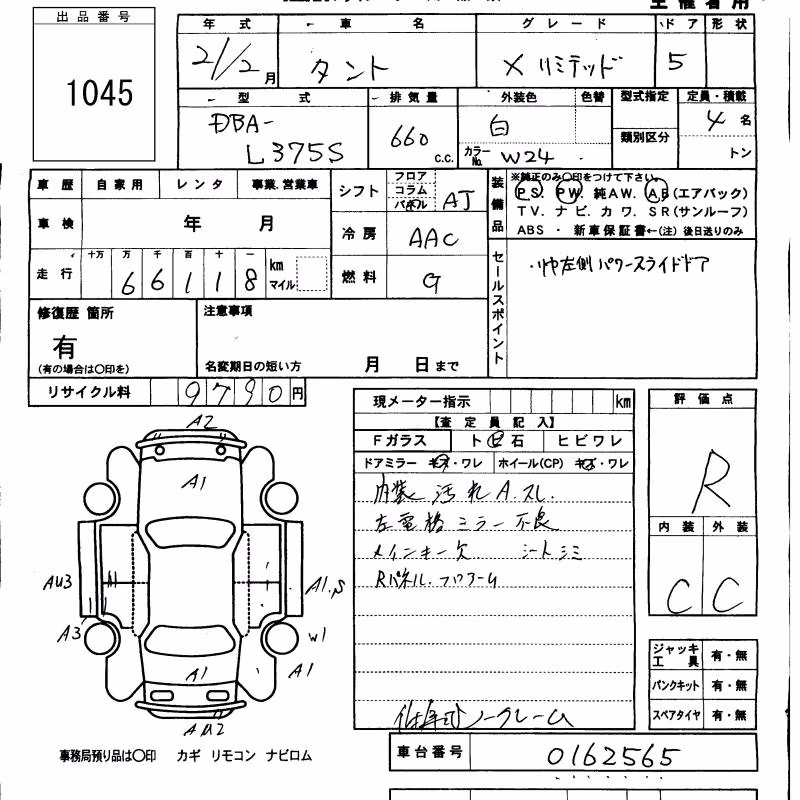 出品番号
1045
年式 車名 グレード ドア 形状
21/2月 タント X リミテッド 5
型式 排気量 外装色 色替 型式指定 定員・積載
DBA-
L375S
660 c.c.
白
カラーNo. W24
類別区分
4名
トン
車歴 自家用 レンタ 事業.営業車
車検 年 月
走行 十万 万 千 百 十 一
66118 km マイル
シフト フロア コラム パネル AT
冷房 AAC
燃料 G
装備品
※純正のみ○印をつけて下さい。
PS. PW. 純AW. AB(エアバック)
TV. ナビ. カワ. SR(サンルーフ)
ABS ・ 新車保証書←(注)後日送りのみ
セールスポイント
左側パワースライドドア
修復歴 箇所
有
(有の場合は○印を)
注意事項
名変期日の短い方 月 日まで
リサイクル料 9790円
現メーター指示 km
【査定員記入】
Fガラス ト ヒ 石 ヒビワレ
ドアミラー キズ・ワレ ホイール(CP) キズ・ワレ
内装 汚れ A.スレ.
左電格ミラー不良
メインキー欠 シートシミ
Rパネル.フロアーム
ノークレーム
評価点
R
内装 外装
C C
ジャッキ工具 有・無
パンクキット 有・無
スペアタイヤ 有・無
車台番号 0162565
A2
A1
AU3
A1.S
A3
W1
A1
A1
AU2
事務局預り品は○印 カギ リモコン ナビロム